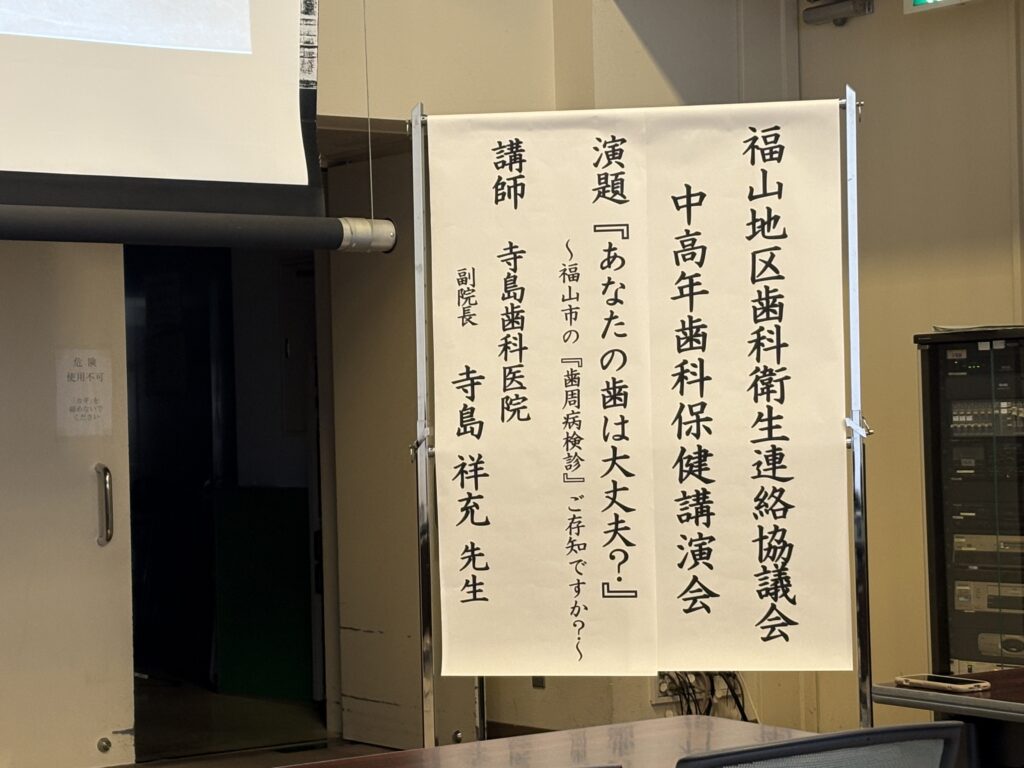 福山地区歯科衛生連絡協議会
中高年歯科保健講演会
演題『あなたの歯は大丈夫？』
～福山市の『歯周病検診』ご存知ですか？～
講師 寺島歯科医院
副院長 寺島 祥充 先生
危険
使用不可